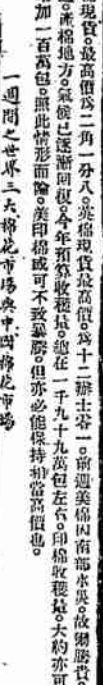 現貨。最高價爲二角一分八。英棉現貨最高價。爲十二辦士零一。前週美棉因南部水災。故爾勝貴。
產棉地方。氣候已逐漸回復。今年預算收穫量。總在一千九十九萬包左右。印棉收穫量。大約亦可
加一百萬包。照此情形而論。美印棉或可不致暴騰。但亦必能保持相當高價也。
一週間之世界三大棉花市場與中國棉花市場